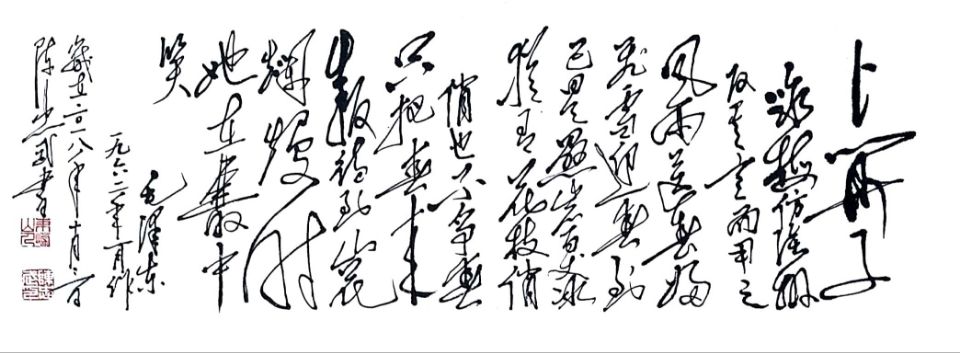 卜算子
咏梅仿陆游
反其意而用之
风雨送春归
飞雪迎春到
已是悬崖百丈冰
犹有花枝俏
俏也不争春
只把春来
报待到山花
烂熳时
她在丛中
笑
毛泽东
一九六二年一月作
岁在二〇一八年十月
陈忠武书